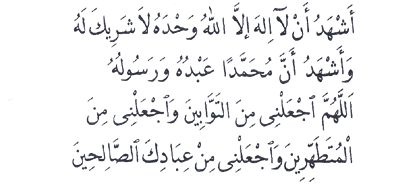 أَشْهَدُ أَنْ لَآ اِلهَ اِلَّا اللهُ وَحْدَهُ لَا شَرِيكَ لَهُ
وَأَشْهَدُ أَنَّ مُحَمَّدًا عَبْدُهُ وَرَسُولُهُ
اَللَّهُمَّ ٱجْعَلْنِى مِنَ التَّوَّابِينَ وَٱجْعَلْنِى مِنَ
الْمُتَطَهِّرِينَ وَٱجْعَلْنِى مِنْ عِبَادِكَ الصَّالِحِينَ